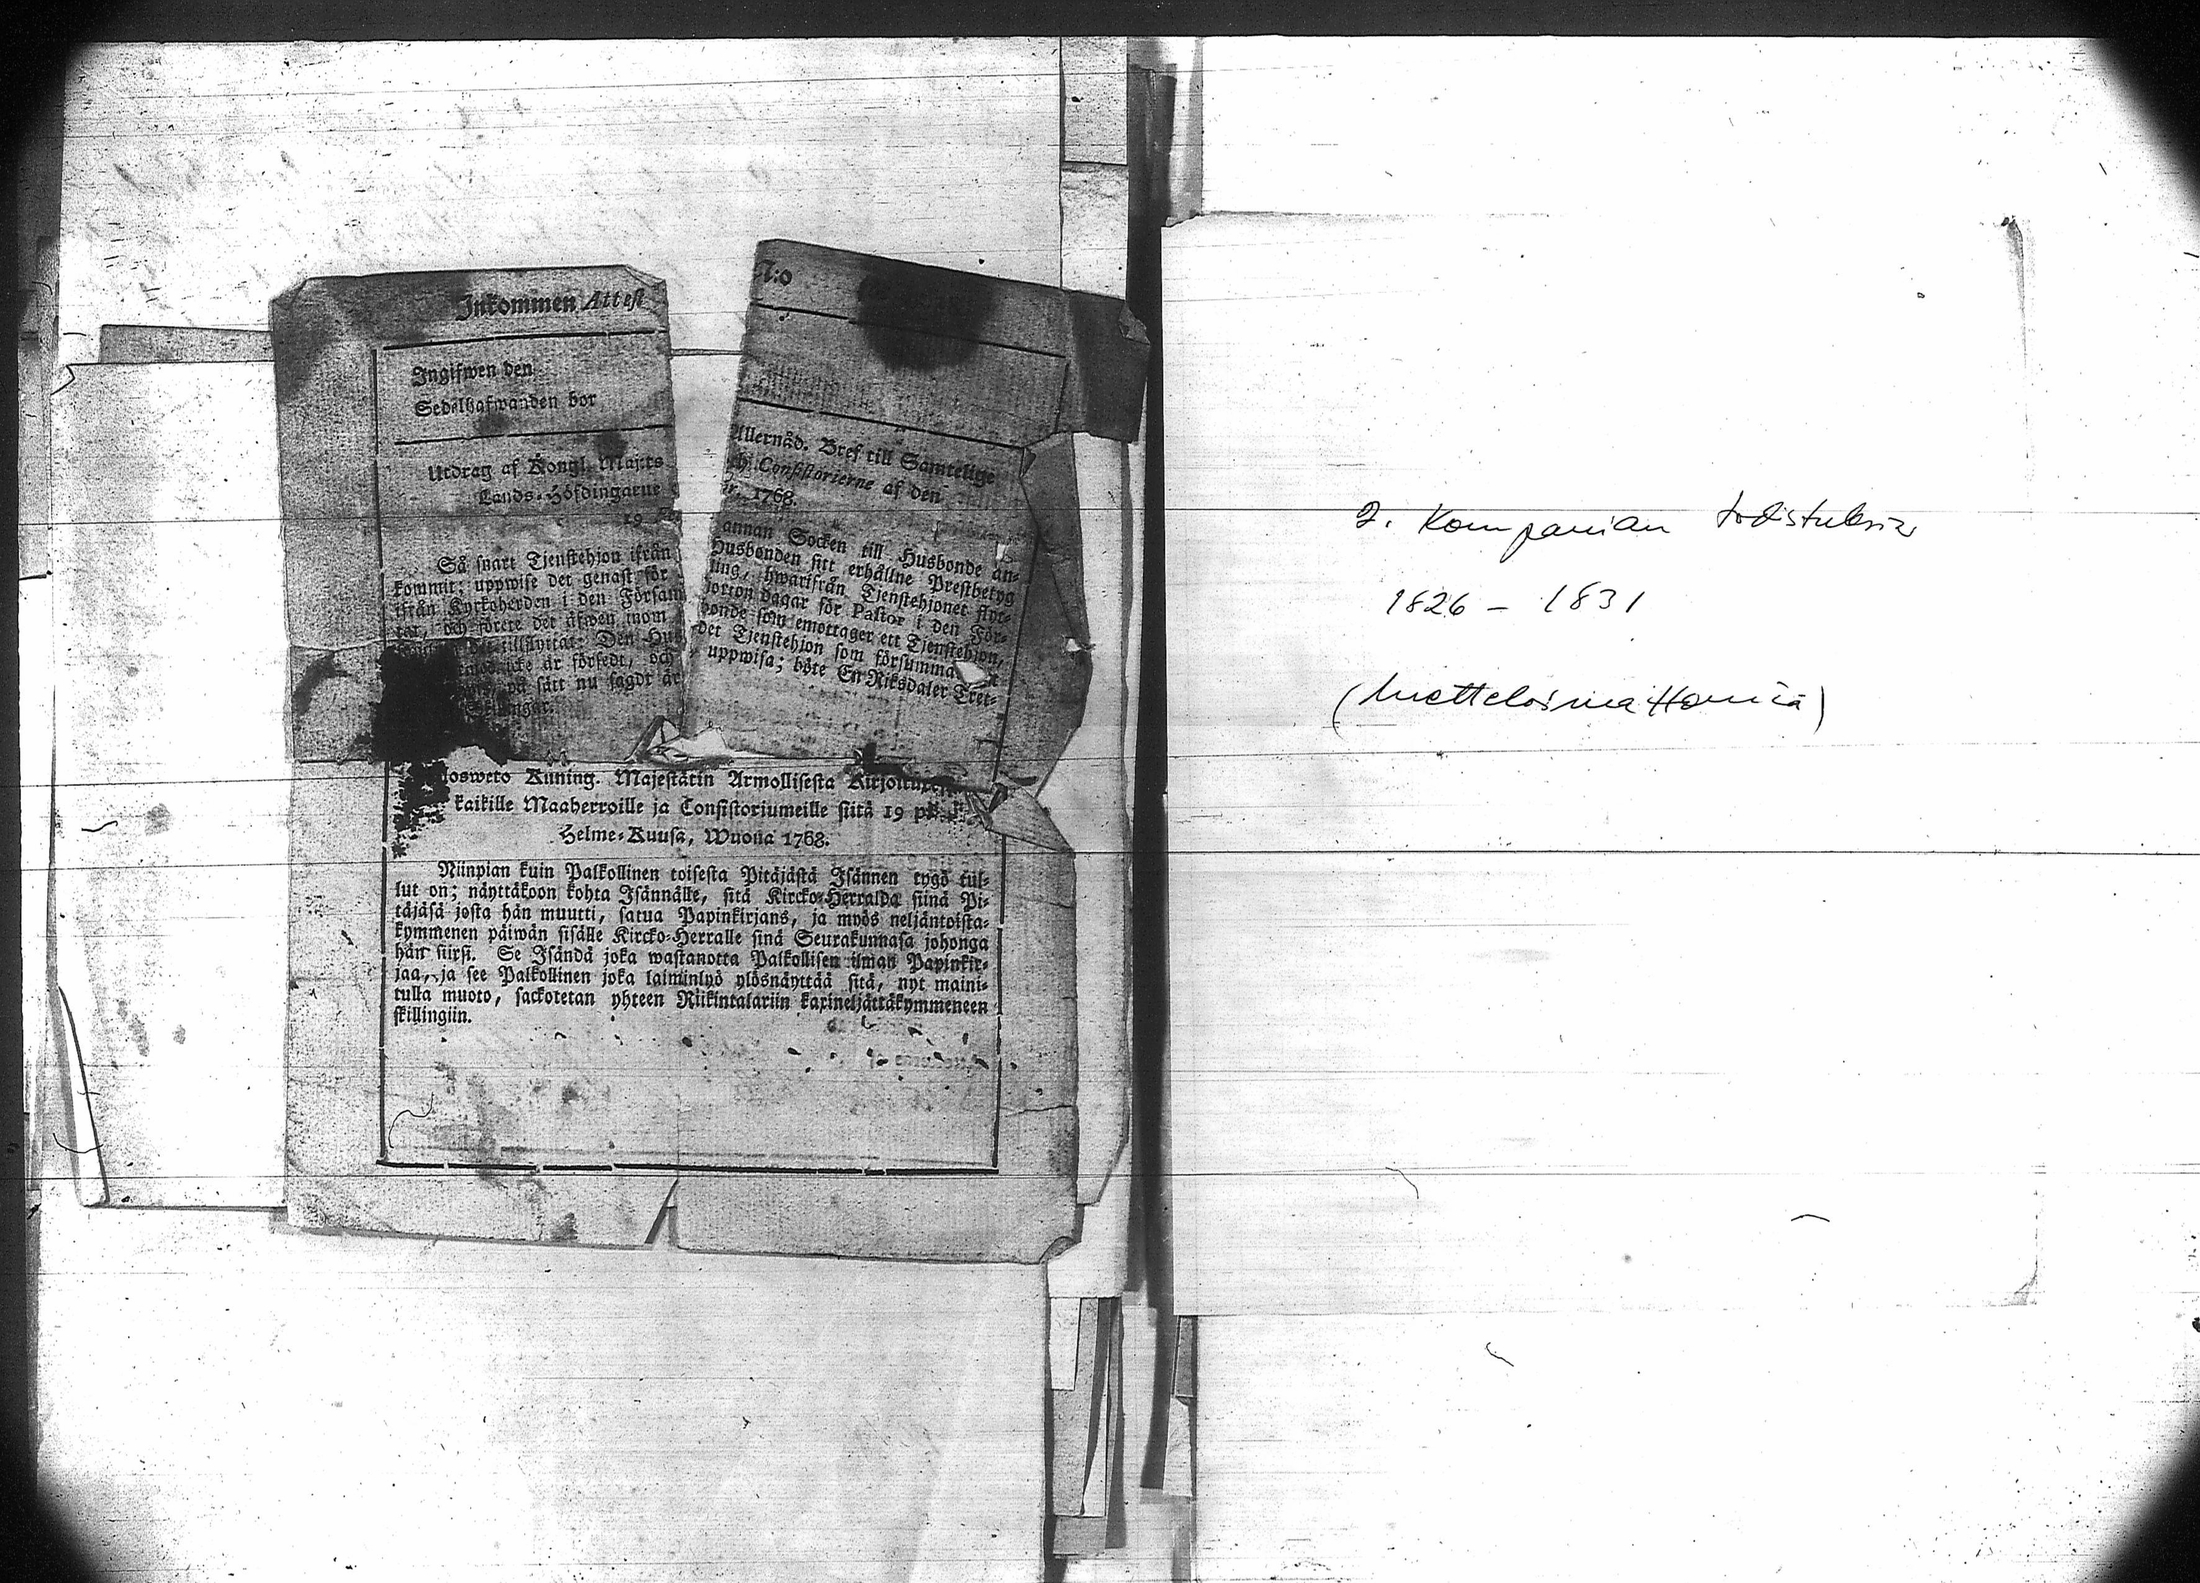 Inkommen Attest
N:o
Ingifwen den
Sedelhafwanden bor
Utdrag af Kongl. Maj:ts Allernåd. Bref till Samtelige
Lands-Höfdingarne och Consistorierne af den
19 1768.
Så snart Tjenstehjon ifrån annan Socken till Husbonde an-
kommit; uppwise det genast för Husbonden sitt erhållne Prestbetyg
ifrån Kyrkoherden i den Församling, hwarifrån Tjenstehjonet flyt-
tar, och förete det äfwen inom fjorton dagar för Pastor i den För-
det tillflyttar. Den Husbonde som emottager ett Tjenstehjon,
icke är försedt, och det Tjenstehjon som försumma
på sätt nu sagdt är uppwisa; böte En Riksdaler Tret-
Kuning. Majestätin Armollisesta
kaikille Maaherroille ja Consistoriumeille siitä 19 p:
Helme-Kuusa, Wuona 1768.
Niinpian kuin Palkollinen toisesta Pitäjästä Isännen tygö tul-
lut on; näyttäkoon kohta Isännälle, sitä Kircko-Herralda siinä Pi-
täjäsä josta hän muutti, satua Papinkirjans, ja myös neljäntoista-
kymmenen päiwän sisälle Kircko-Herralle sinä Seurakunnasa johonga
hän siirsi. Se Isändä joka wastanotta Palkollisen ilman Papinkir-
jaa, ja see Palkollinen joka laiminlyö ylösnäyttää sitä, nyt maini-
tulla muoto, sackotetan yhteen Riikintalariin kaxineljättäkymmeneen
skillingiin.
2. Kompanian todistuksia
1826 – 1831
(luetteloimattomia)